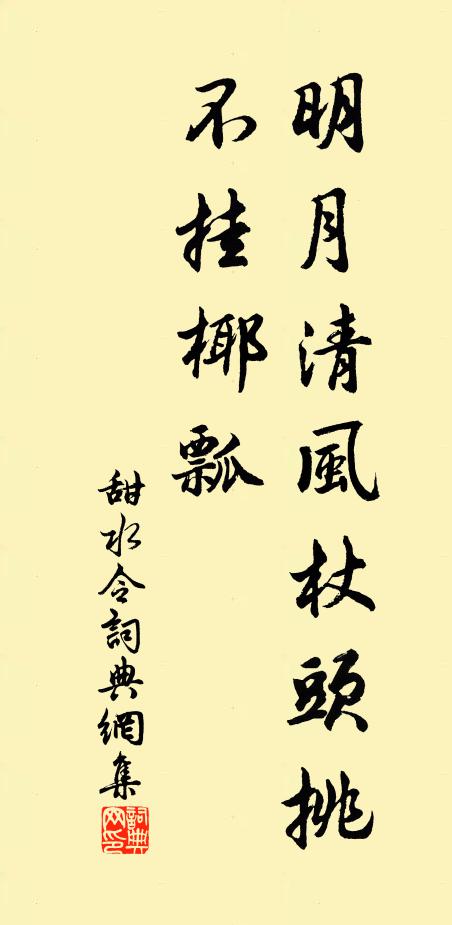 明月清風杖頭挑
不挂椰瓢
甜水令詞典網集
詞典網印